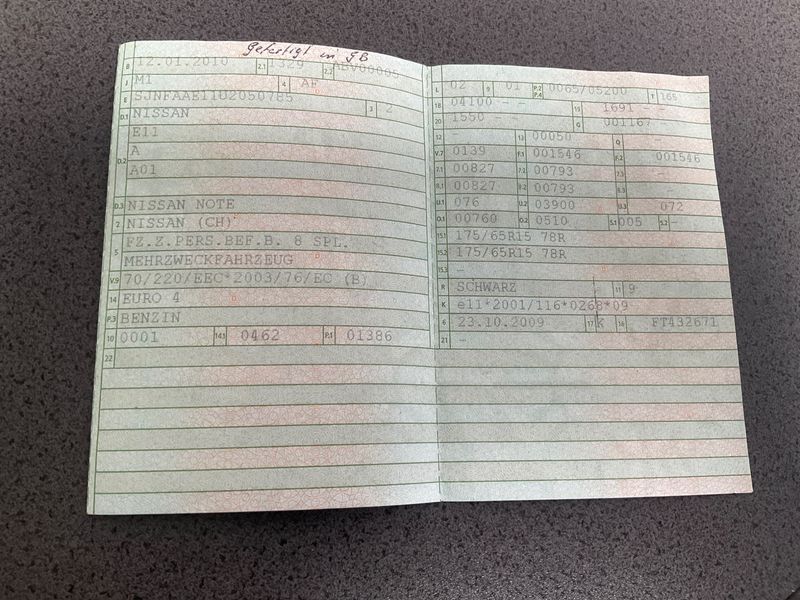 Gefertigt in GB
B 12.01.2010 2.1 1329 2.2 ABV00005
J M1 4 AF
E SJNFAAE11U2050785 3 2
D.1 NISSAN
E11
D.2 A
A01
D.3 NISSAN NOTE
2 NISSAN (CH)
5 FZ.Z.PERS.BEF.B. 8 SPL.
MEHRZWECKFAHRZEUG
V.9 70/220/EEC*2003/76/EC (B)
14 EURO 4
P.3 BENZIN
10 0001 14.1 0462 P.1 01386
22
L 02 9 01 P.2 P.4 0065/05200 T 165
18 04100 - - 19 1691 - -
20 1550 - - G 001167 -
12 - 13 00050 Q -
V.7 0139 F.1 001546 F.2 001546
7.1 00827 7.2 00793 7.3 -
8.1 00827 8.2 00793 8.3 -
U.1 076 U.2 03900 U.3 072
O.1 00760 O.2 0510 S.1 005 S.2 -
15.1 175/65R15 78R
15.2 175/65R15 78R
15.3 -
R SCHWARZ 11 9
K e11*2001/116*0268*09
6 23.10.2009 17 k 16 FT432671
21 -